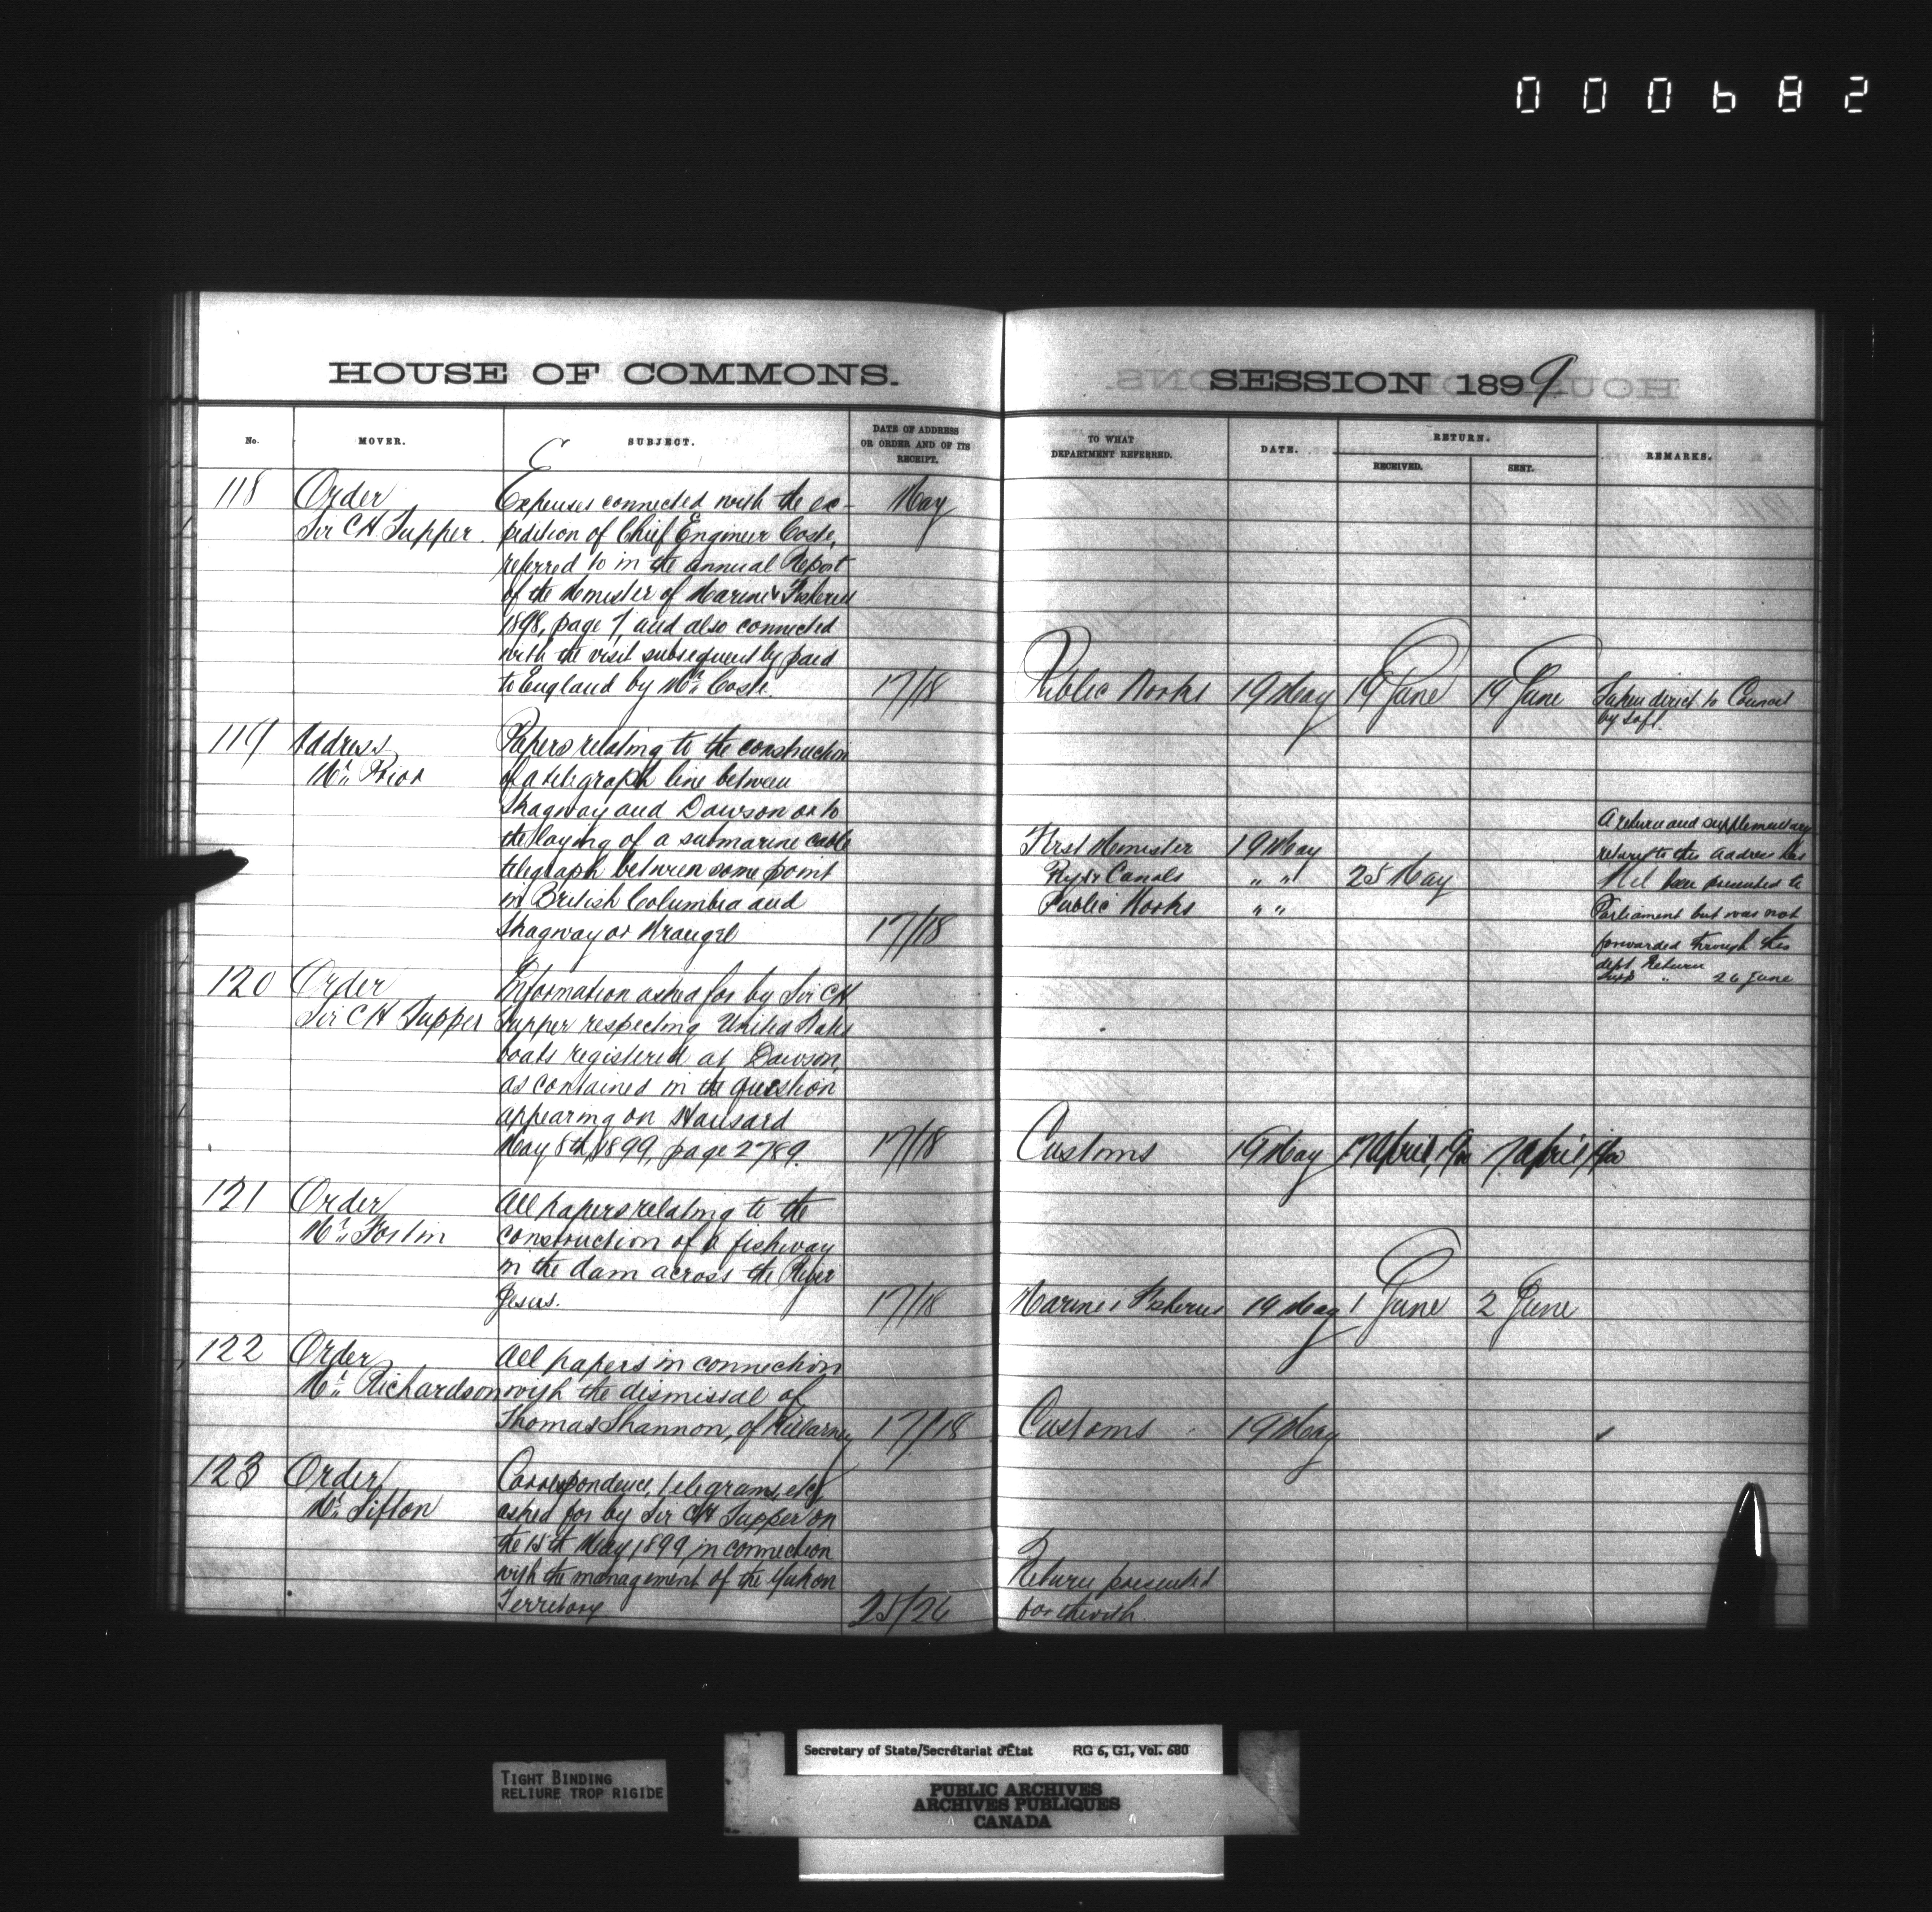 000682
HOUSE OF COMMONS.
SESSION 1899
No.
MOVER.
SUBJECT.
DATE OF ADDRESS
OR ORDER AND OF ITS
RECEIPT.
TO WHAT
DEPARTMENT REFERRED.
DATE.
RETURN.
RECEIVED.
SENT.
REMARKS.
118 Order Expenses connected with the ex- May
Sir C H Tupper. pedition of Chief Engineer Coste,
referred to in the annual Report
of the Minister of Marine & Fisheries
1898, page 7, and also connected
with the visit subsequently paid
to England by Mr. Coste. 17/18 Public Works 19 May 19 June 19 June Taken direct to Council
by
119 Address Papers relating to the construction
Mr. Prior of a telegraph line between
Skagway and Dawson or to
the laying of a submarine cable First Minister 19 May
telegraph between some point Rys & Canals " " 25 May
in British Columbia and Public Works " "
Skagway or Wrangel 17/18
A return and supplementary
return to this address has
been presented to
Parliament but was not
forwarded through this
dept Return
Supp " 26 June
120 Order Information asked for by Sir C H
Sir C H Tupper Tupper respecting United States
boats registered at Dawson,
as contained in the question
appearing on Hansard
May 8th, 1899, page 2789. 17/18 Customs 19 May 17 April, 1900 17 April 1900
121 Order All papers relating to the
Mr. Fortin construction of a fishway
in the dam across the River
Jesus. 17/18 Marine & Fisheries 19 May 1 June 2 June
122 Order All papers in connection
Mr. Richardson with the dismissal of
Thomas Shannon, of Killarney 17/18 Customs 19 May
123 Order Correspondence, telegrams, etc,
Mr. Sifton asked for by Sir C H Tupper on
the 15th May 1899, in connection
with the management of the Yukon Return presented
Territory. 25/26 forthwith.
TIGHT BINDING
RELIURE TROP RIGIDE
Secretary of State/Secrétariat d'État RG 6, G1, Vol. 680
PUBLIC ARCHIVES
ARCHIVES PUBLIQUES
CANADA